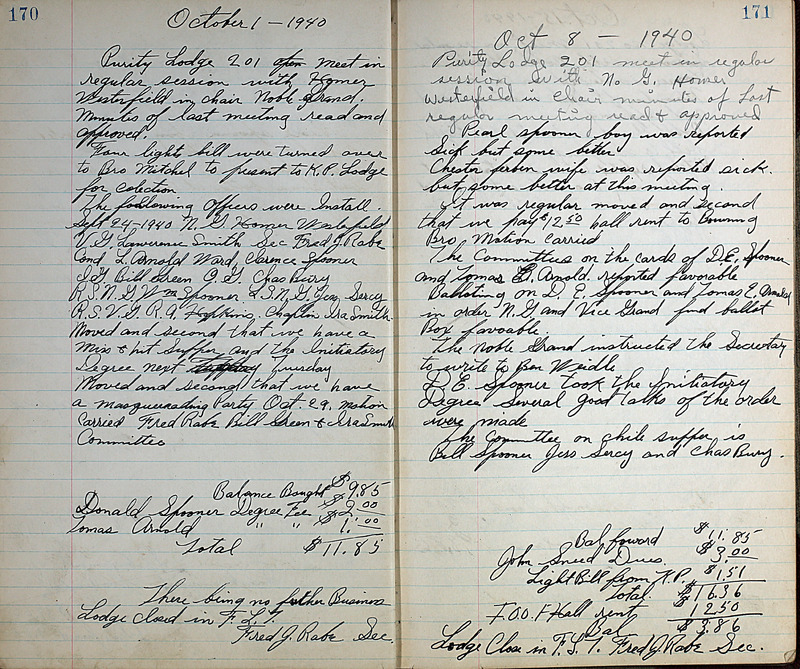 170
October 1 - 1940
Purity Lodge 201 open meet in
regular session with Homer
Westerfield in chair Noble Grand.
Minutes of last meeting read and
approved.
Four light bill were turned over
to Bro Mitchel to present to K.P. Lodge
for colection
The following offices were Install.
Sept 24-1940 N.G. Homer Westerfield
V.G. Lawrence Smith Sec Fred J. Rabe
Cond L. Arnold Ward, Clarence Spooner
I.G. Bill Green O.G. Chas Bury
R.S.N.G. Wm Spooner L.S.N.G. Jess Sercy
R.S.V.G. R.A. Hopkins. Chaplin Ira Smith.
Moved and second that we have a
Miss & hit Supper and the Initiatory
Degree next Tuesday
Moved and second that we have
a masqueerading Party Oct. 29, motion
Carried Fred Rabe Bill Green & Ira Smith
Committee
Balance Bought $9.85
Donald Spooner Degree Fee $1.00
Tomas Arnold " " $1.00
Total $11.85
There being no futher Business
Lodge closed in F.L.T.
Fred J. Rabe Sec.
171
Oct 8 - 1940
Purity Lodge 201 meet in regular
session with N.G. Homer
Westerfield in chair minutes of Last
regular meeting read & approved
Pearl spooner boy was reported
Sick but some better
Chester wife was reported sick.
but some better at this meeting.
It was regular moved and second
that we pay $12.50 hall rent to
Bro, Motion carried
The Committees on the cards of D.E. Spooner
and Tomas E. Arnold reported favorable
Balloting on D. E. Spooner and Tomas E. Arnold
in order N.G. and Vice Grand find ballot
Box favoable.
The Noble Grand instructed the Secretary
to write to Ben Weidle
D. E. Spooner took the Initiatory
Degree Several good talks of the order
were made
The Committee on chile supper is
Bill Spooner Jess Sercy and Chas Bury.
Bal foward $11.85
John Sneed Dues $3.00
Light Bill from K.P. $1.51
Total $16.36
I.O.O.F Hall rent $12.50
Bal $3.86
Lodge Close in F.L.T. Fred J. Rabe Sec.